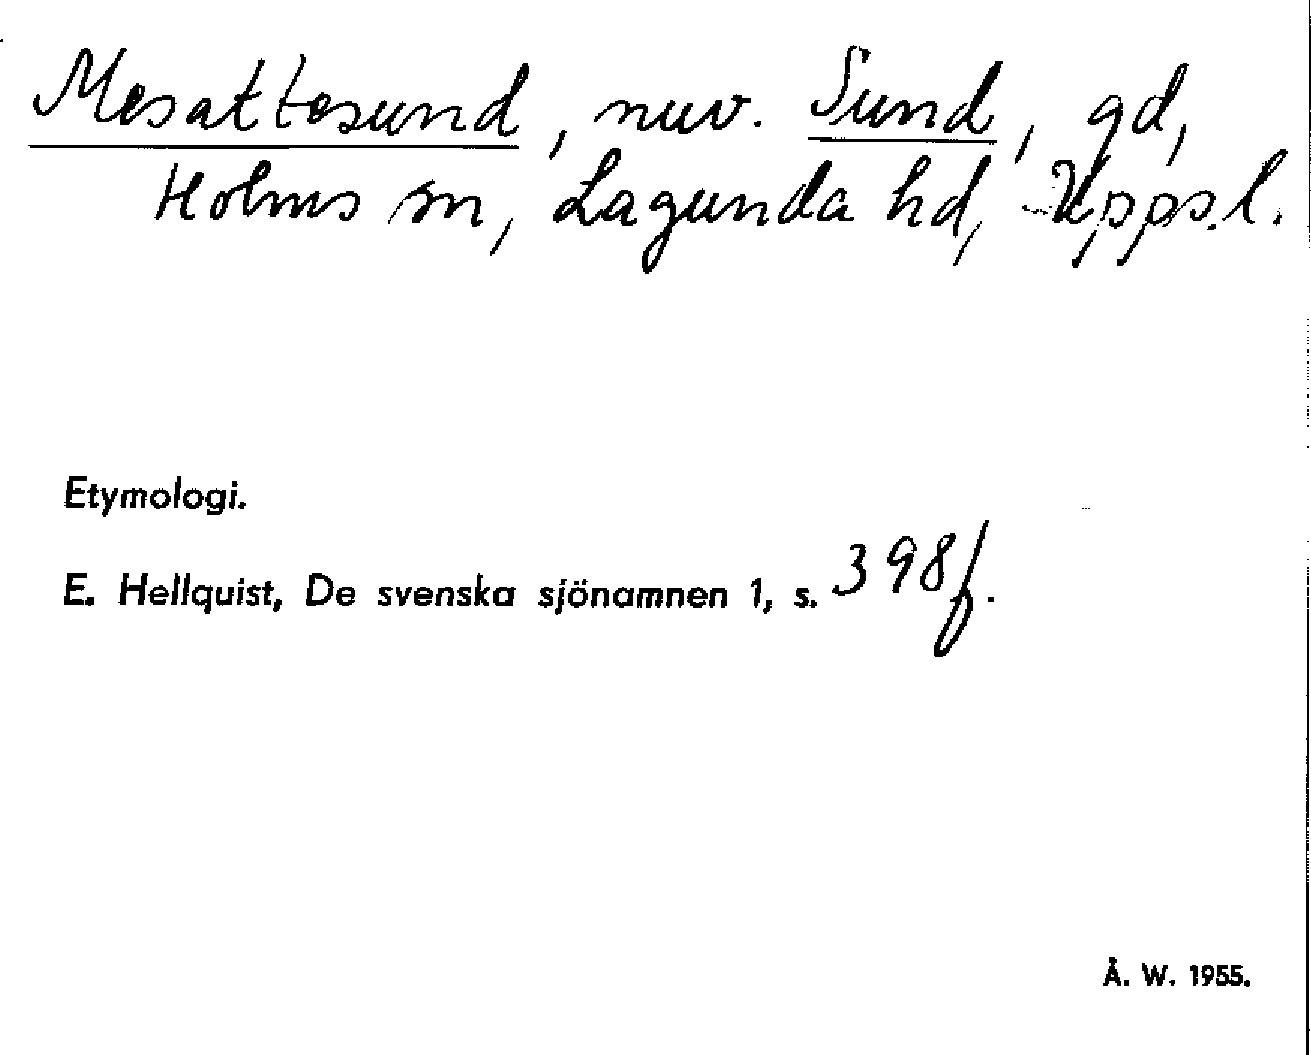 Mesattesund, nuv. Sund, gd,
Holms sn, Lagunda hd, Upps.l.
Etymologi.
E. Hellquist, De svenska sjönamnen 1, s. 398f.
Å. W. 1955.